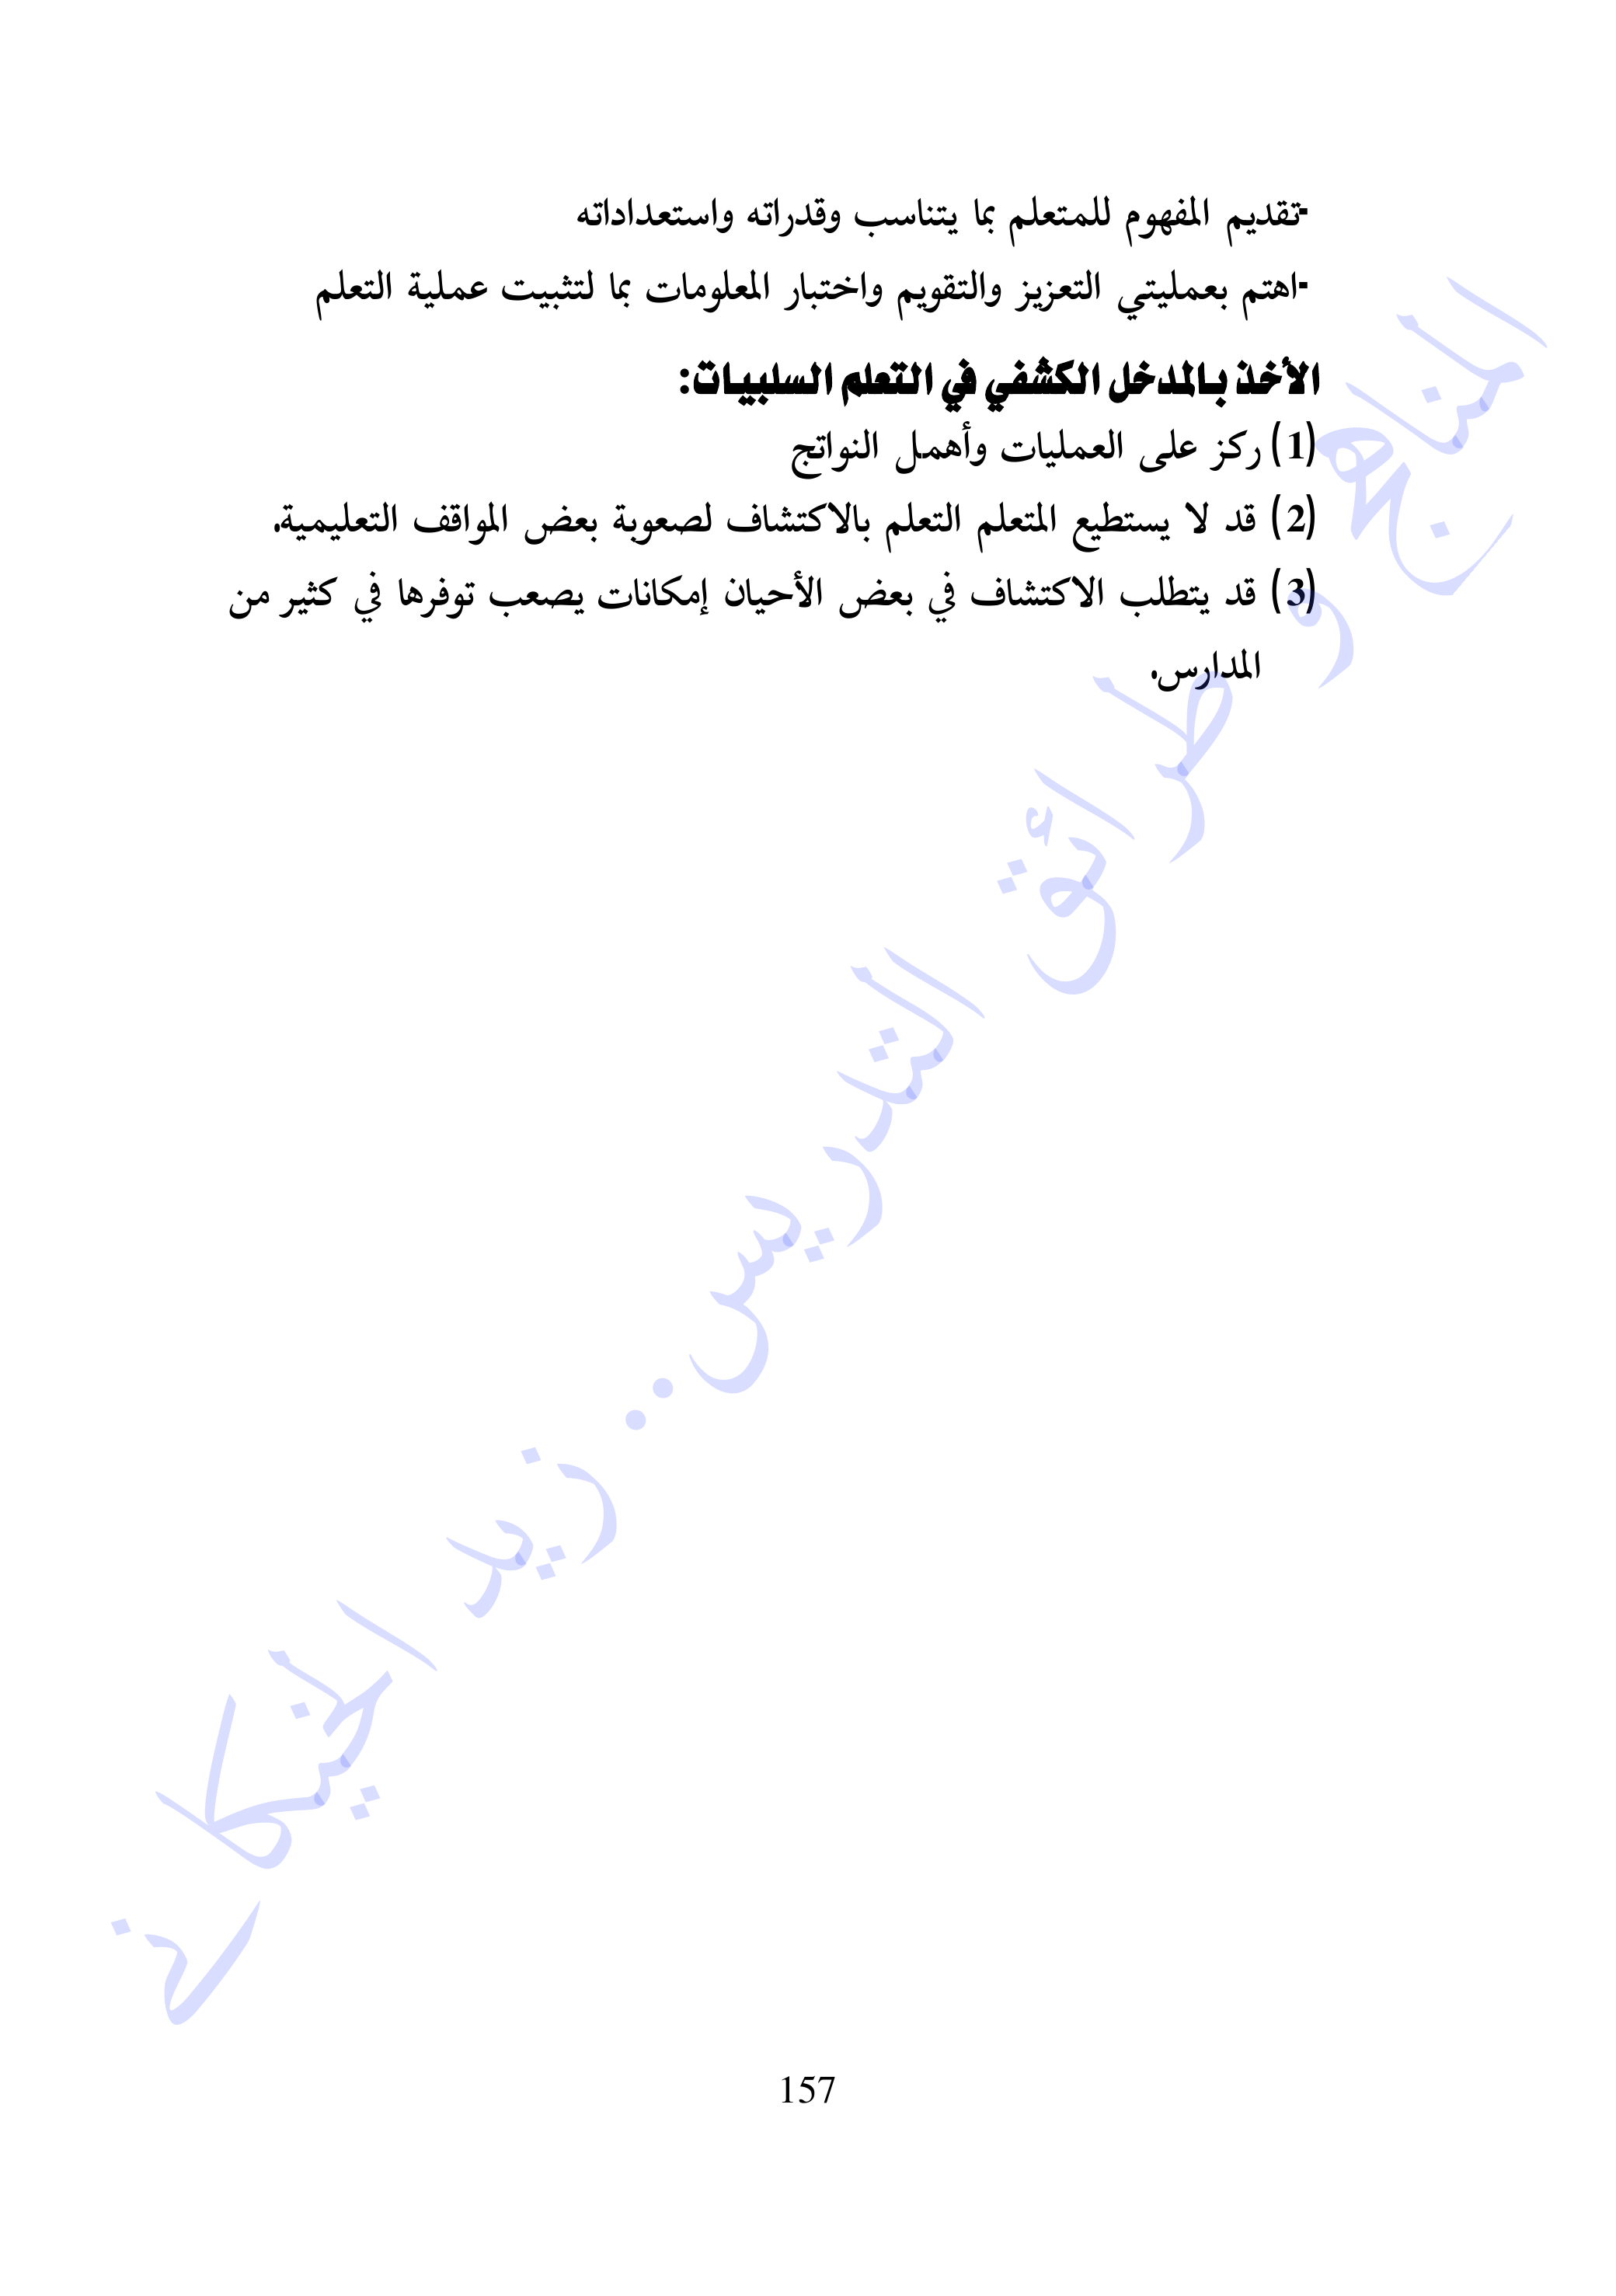 -تقديم المفهوم للمتعلم بما يتناسب وقدراته واستعداداته
-اهتم بعمليتي التعزيز والتقويم واختبار المعلومات بما لتثبيت عملية التعلم
الأخذ بالمدخل الكشفي في التعلم السلبيات:
(1) ركز على العمليات وأهمل النواتج
(2) قد لا يستطيع المتعلم التعلم بالاكتشاف لصعوبة بعض المواقف التعليمية.
(3) قد يتطلب الاكتشاف في بعض الأحيان إمكانات يصعب توفرها في كثير من
المدارس.
المناهج و طرائق التدريس.. زيد الخيكاني
157